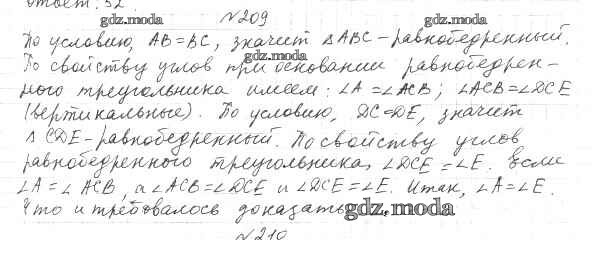 ответ: 52.
№209
По условию, AB=BC, значит ΔABC-равнобедренный.
По свойству углов при основании равнобедрен-
ного треугольника имеем: ∠A=∠ACB; ∠ACB=∠DCE
(вертикальные). По условию, DC=DE, значит
Δ CDE-равнобедренный. По свойству углов
равнобедренного треугольника, ∠DCE=∠E. Если
∠A=∠ACB, а ∠ACB=∠DCE и ∠DCE=∠E. Итак, ∠A=∠E.
Что и требовалось доказать
№210
gdz.moda
gdz.moda
gdz.moda
gdz.moda